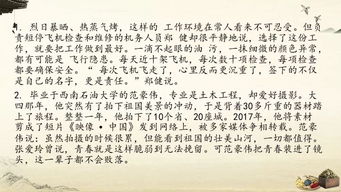 1. 烈日暴晒、热蒸气烤，这样的 工作环境在常人看来不可忍受。但负
责短停飞机检查和维修的机务人员郑 健却很干静地说，选择了这份工
作，就要把工作做到最好。一滴不起眼的油 污，一抹细微的颜色异常，
都有可能是 飞行隐患。每天近十架飞机，每次数十项检查，每项检查
都要确保安全。“ 每次飞机飞走了，心里反而更沉重了，签下的不仅
是自己的名字，更是责任。”郑健说。
2. 毕业于西南石油大学的范豪伟，专业是土木工程，却爱好摄影。大
四那年，他突然有了拍下祖国美景的冲动，于是背着30多斤重的器材踏
上了旅程。整整一年，他拍下了10个省、20座城。2017年，他将素材
剪成了短片《映像·中国》发到网络上，被多家媒体争相转载。范豪
伟说：虽然拍摄的时候很累，但能看到祖国的壮美山河，一切都值得。
张爱玲曾说，青春就是这样脆弱到无法挽留。可范豪伟把青春装进了镜
头，这一辈子都不会败落。